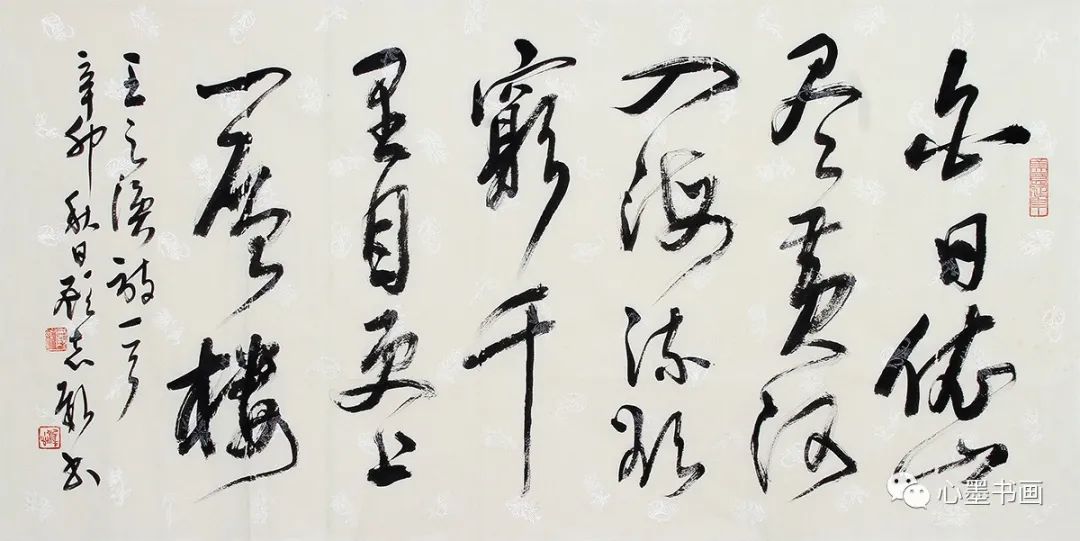 白日依山
尽黄河
入海流欲
窮千
里目更上
一層樓
王之涣诗一首
辛卯秋日志书
心墨书画